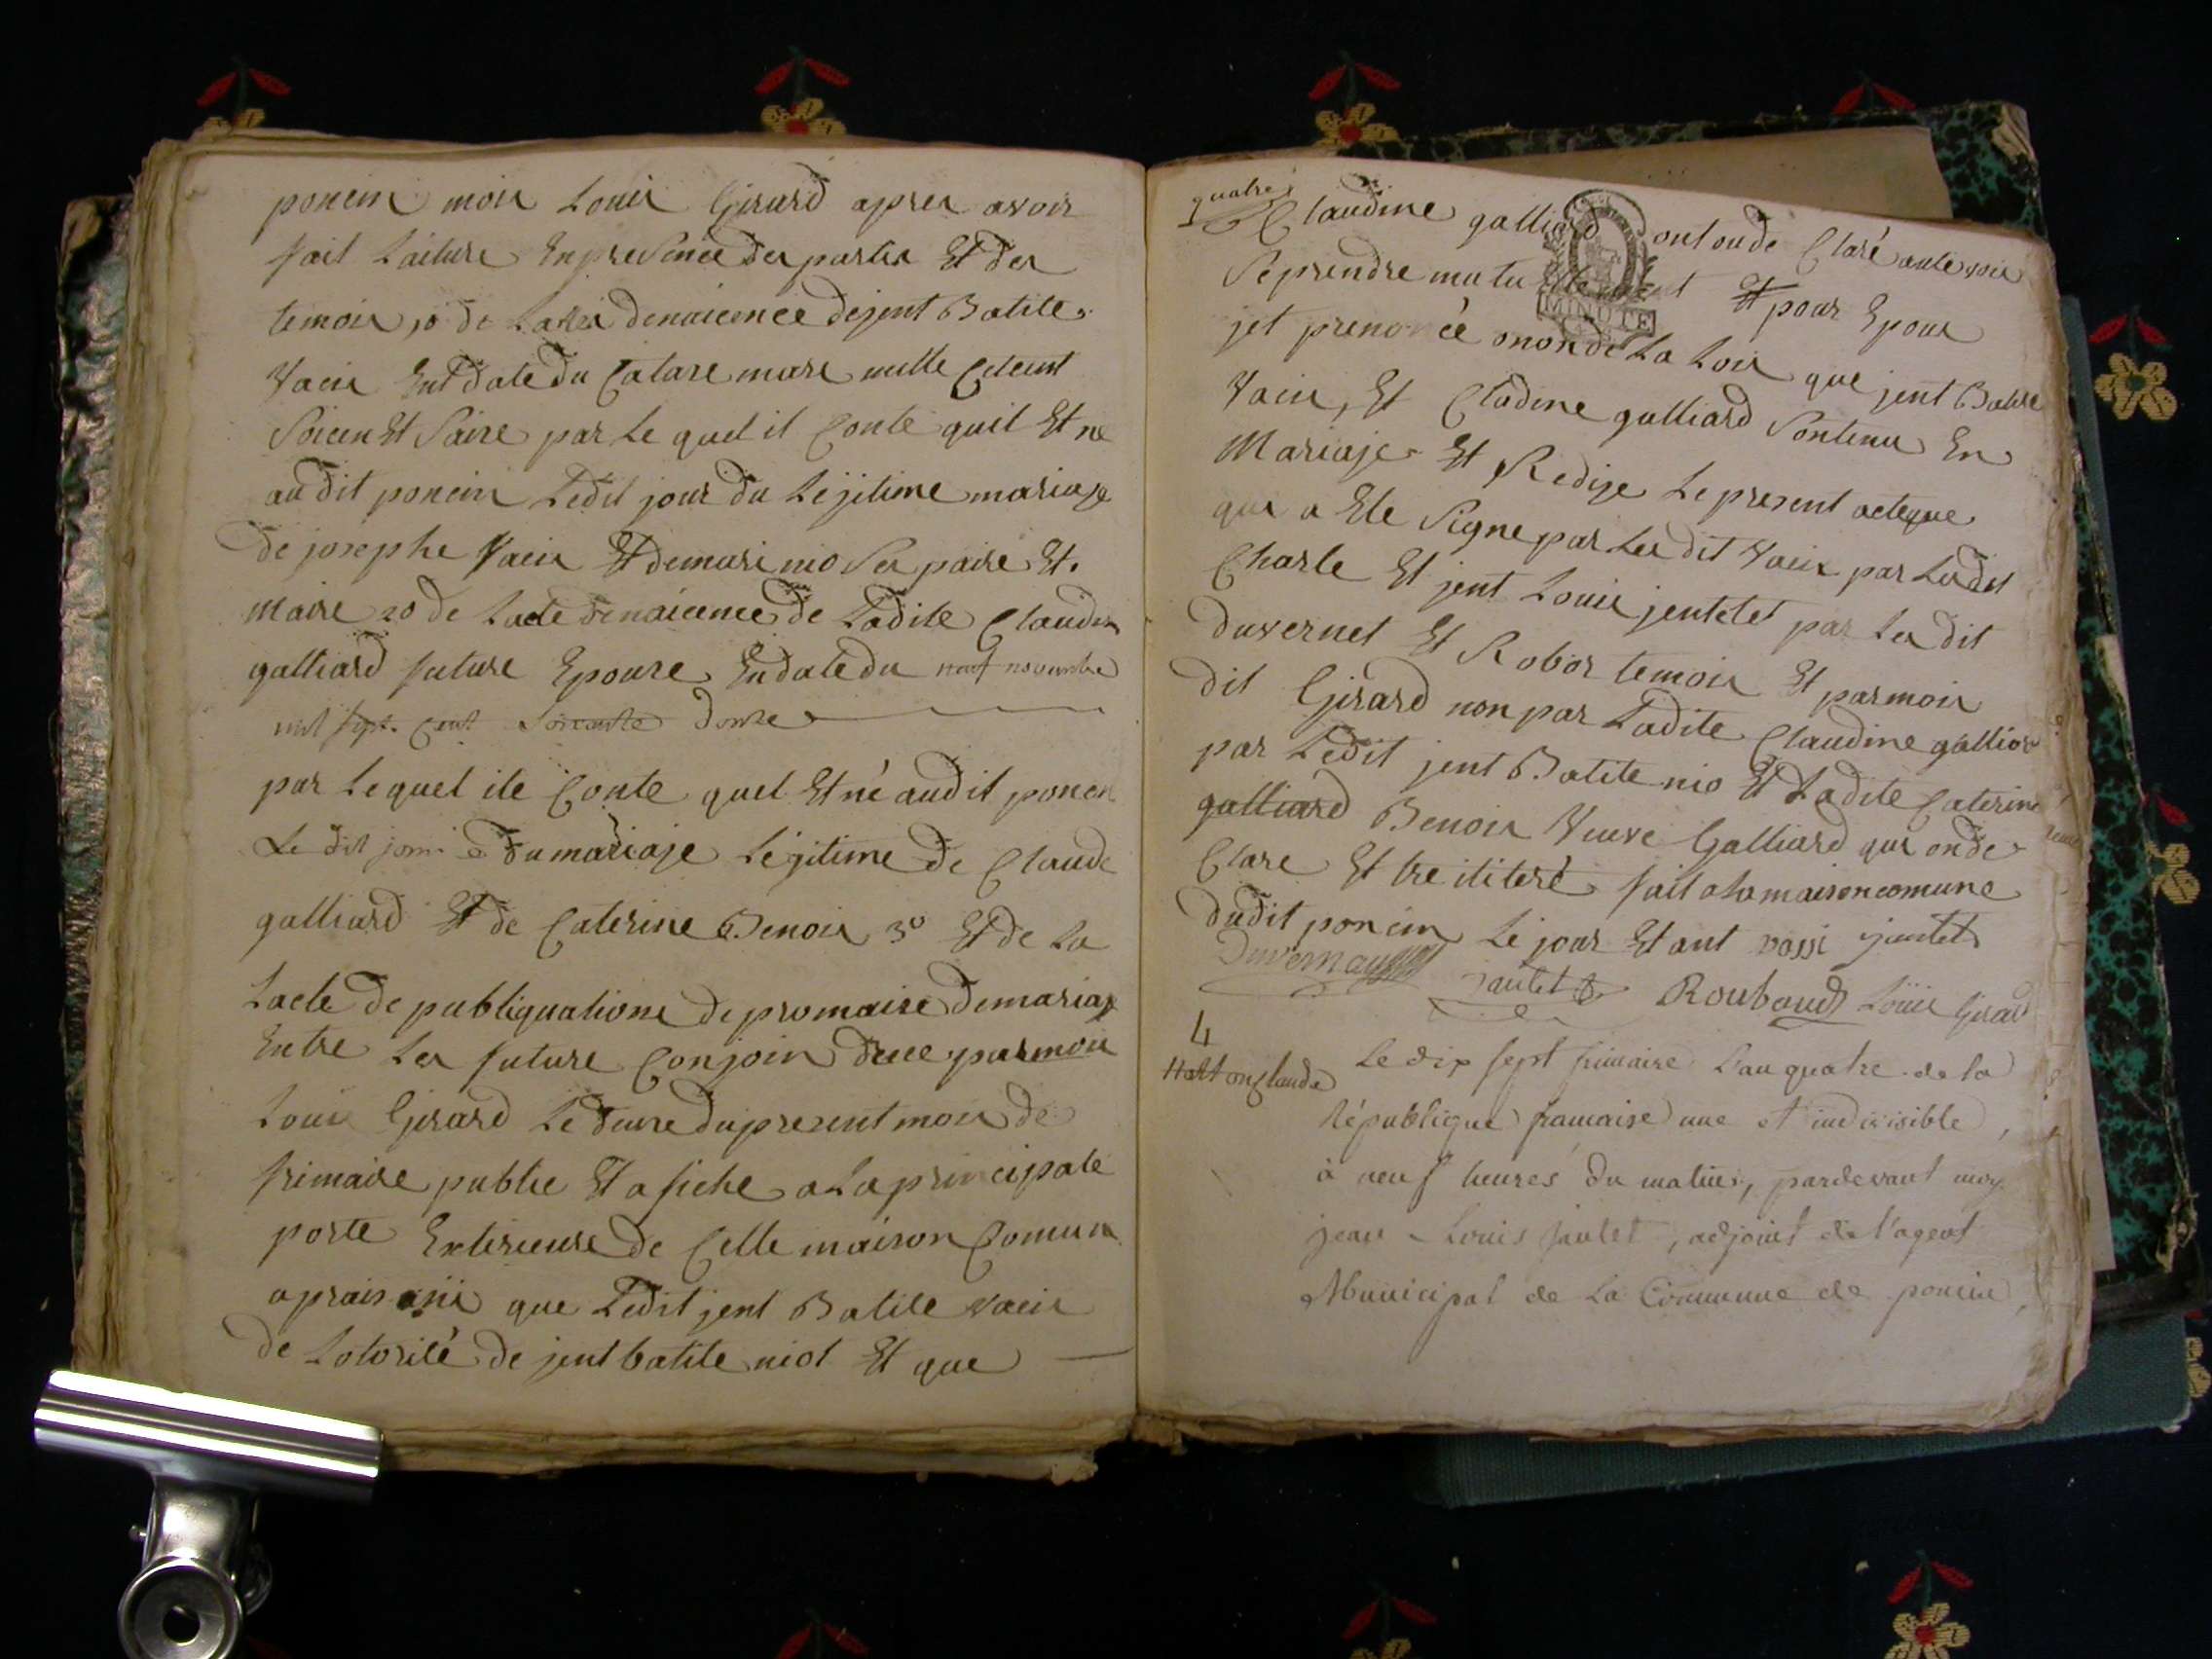 ponein moi Louis Girard apres avoir
fait Laiture En presence des partis Et des
temois, 1o de Latte denaicence dejent Batite
Vaux Ent date du Catore mars mille Ceteint
Soicent Et Saise par Le quel il Conte quil Et ne
au dit ponein Ledit jour du Lejitime mariaje
de josephe Vaux Et demari nio Ses paire Et
Maire 2o de Lacte denaicence de Ladite Claudin
galliard future Epouse En date du neuf novembre
mil sept Cent Soixante Douze
par Lequel ile Conte quel Et né audit ponein
Le dit jour e du mariaje Légitime de Claude
galliard Et de Caterine Benois 3o Et de La
Lacte de publiquatione de promaise demariaje
Entre Les future Conjoin Drece par moi
Louis Girard Le deuse du present mois de
frimaire publie Et afiche a La principale
porte Exterieure de Celle maison Comune
aprais osii que Ledit jent Batite Vaux
de Lotorité de jent batite niot Et que
quatre
Claudine galliard ont onde Claré aute voix
Se prendre mutuellement Et pour Epoux
jet prenoncé onon de La Loix que jent Batise
Vaux, Et Cladine galliard Sontenu En
Mariaje Et Redije Le present acteque
qui a Ete Signe par Les dit Vaux par Ledit
Charle Et jent Louis jentetet par Les dit
Duvernet Et Robor temoix Et parmoi
dit Girard non par Ladite Claudine galliar
par Ledit jent Batite nio Et Ladite Caterine
galliard Benois Veuve Galliard qui onde
Clare Et tre ilitere fait a La maison comune
dudit ponein Le jour Et ant vassi jantet
Duvernay jantet Roubaud Loüis Girard
MINUTE
4
Le dix sept frimaire L'an quatre de la
République francaise une et indivisible,
à neuf heures du matin, pardevant moy
jean Louis jantet, adjoint de l'agent
Municipal de La Commune de poncin,